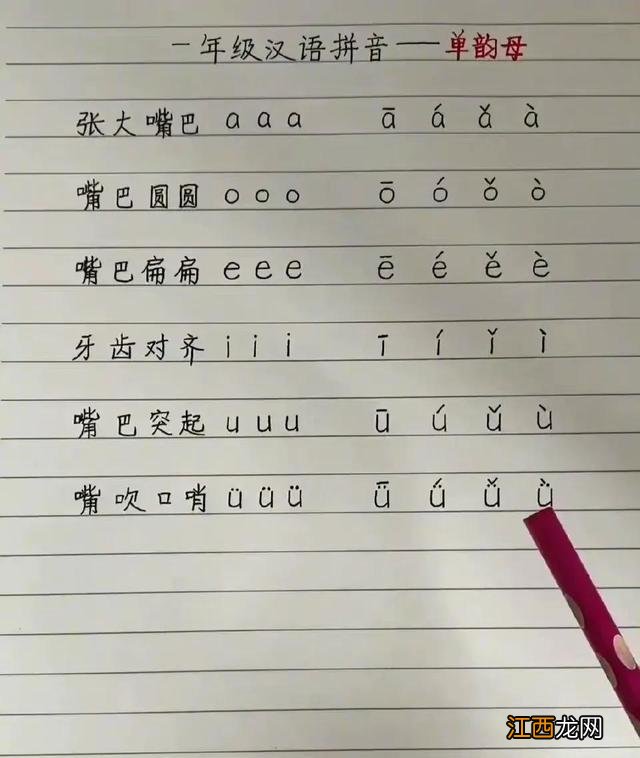 一年级汉语拼音——单韵母
张大嘴巴 a a a ā á ǎ à
嘴巴圆圆 o o o ō ó ǒ ò
嘴巴扁扁 e e e ē é ě è
牙齿对齐 i i i ī í ǐ ì
嘴巴突起 u u u ū ú ǔ ù
嘴吹口哨 ü ü ü ǖ ǘ ǚ ǜ
江西龙网